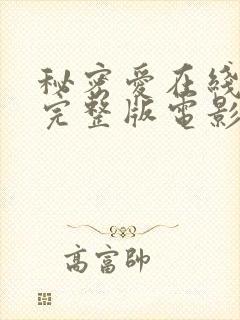 秘密爱在綫
完整版電影
高富帥